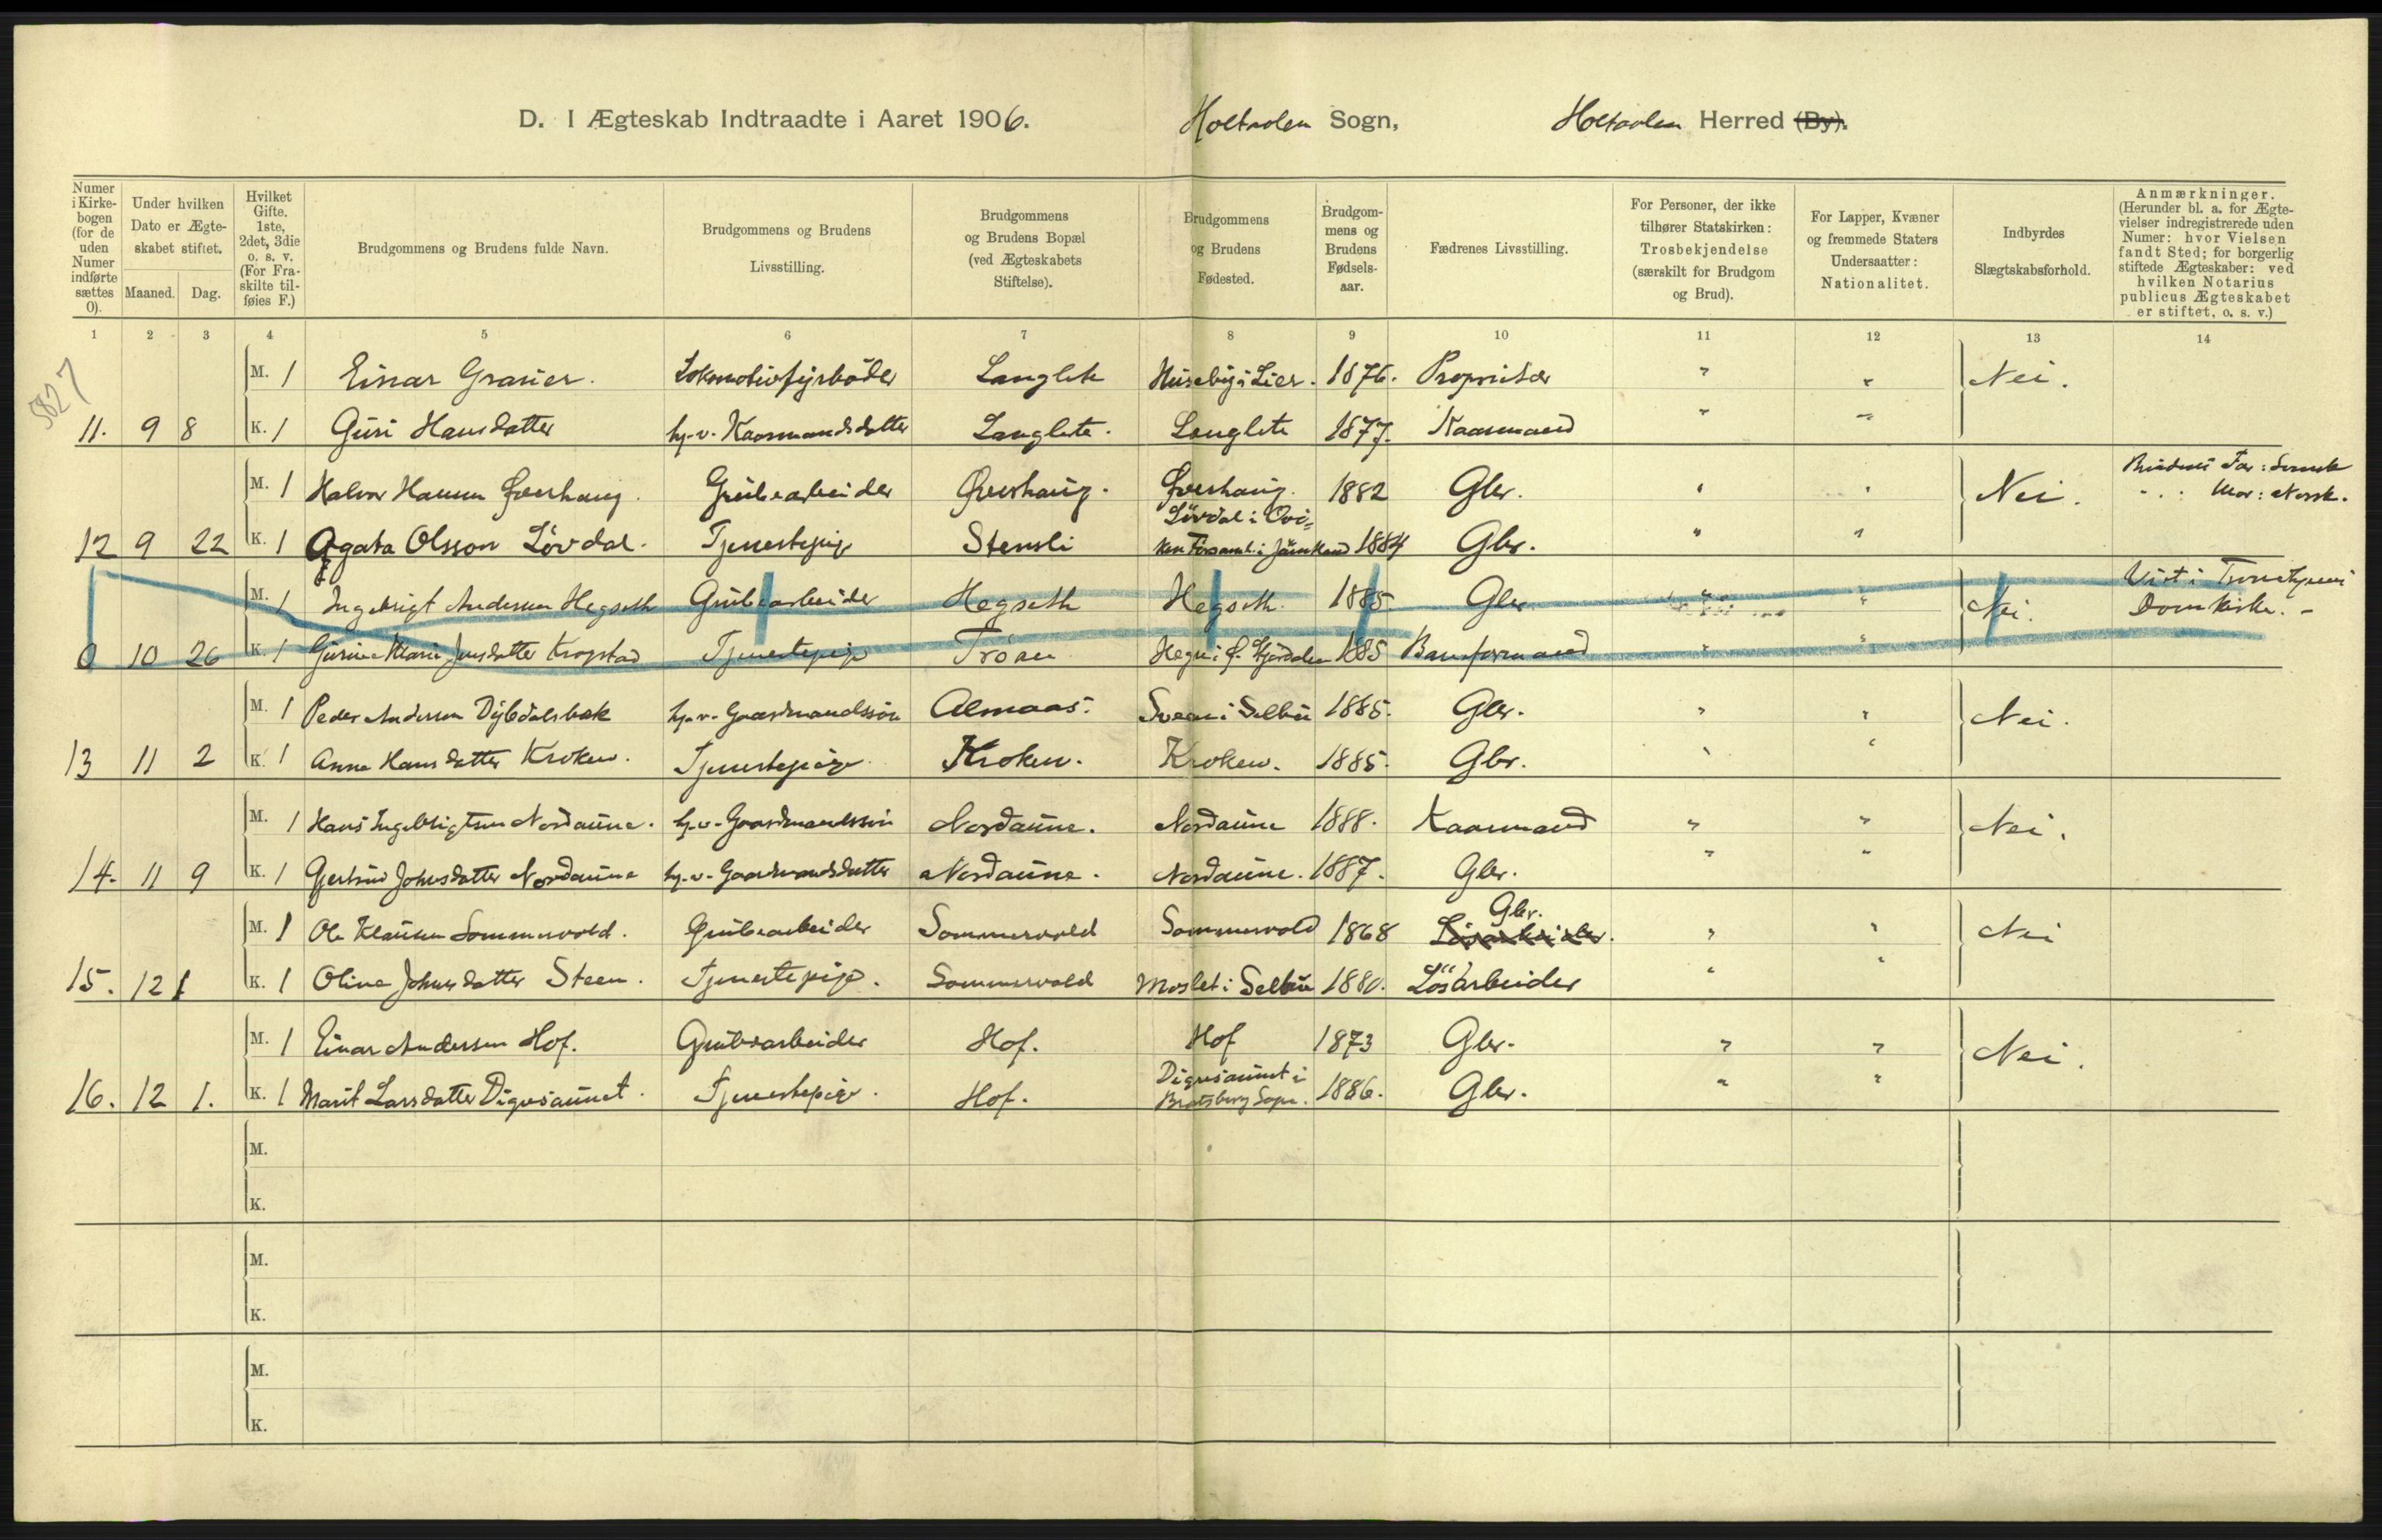 D. I Ægteskab Indtraadte i Aaret 1906. Holtaalen Sogn, Holtaalen Herred (By).
Numer i Kirkebogen (for de uden Numer indførte sættes 0).
Under hvilken Dato er Ægteskabet stiftet.
Maaned. Dag.
Hvilket Gifte. 1ste, 2det, 3die o. s. v. (For Fraskilte tilføies F.)
Brudgommens og Brudens fulde Navn.
Brudgommens og Brudens Livsstilling.
Brudgommens og Brudens Bopæl (ved Ægteskabets Stiftelse).
Brudgommens og Brudens Fødested.
Brudgommens og Brudens Fødselsaar.
Fædrenes Livsstilling.
For Personer, der ikke tilhører Statskirken: Trosbekjendelse (særskilt for Brudgom og Brud).
For Lapper, Kvæner og fremmede Staters Undersaatter: Nationalitet.
Indbyrdes Slægtskabsforhold.
Anmærkninger. (Herunder bl. a. for Ægtevielser indregistrerede uden Numer: hvor Vielsen fandt Sted; for borgerlig stiftede Ægteskaber: ved hvilken Notarius publicus Ægteskabet er stiftet, o. s. v.)
1 2 3 4 5 6 7 8 9 10 11 12 13 14
5827
M. 1 Einar Lokomotivfyrbøder Langlete Husebÿ i Lier. 1876. Proprietær " " Nei.
11. 9 8 K. 1 Guri Hansdatter hj. v. Kaarmandsdatter Langlete. Langlete 1877. Kaarmand " "
M. 1 Halvor Hansen Øverhaug. Grubearbeider Øverhaug. Øverhaug. 1882 Gbr. " " Nei. Brudens Far: Svensk
" : Mor: Norsk.
12 9 22 K. 1 Agata Olsson Lövdal. Tjenestepige Stensli Lövdal i Ovi=
ken Forsaml. i Jämtland 1884 Gbr. " "
M. 1 Ingebrigt Andersen Hegseth Grubearbeider Hegseth Hegseth. 1885 Gbr. " " Nei. Viet i Trondhjems
Domkirke. -
0 10 26 K. 1 Gurine Marie Jensdatter Kragstad Tjenestepige Tröan Hegre i Ø. Stjördalen 1885 Baneformand " "
M. 1 Peder Andersen Dÿbdalsbæk hj. v. Gaardmandssön Almaas. i Selbu 1885. Gbr. " " Nei.
13 11 2 K. 1 Anne Hansdatter Kroken. Tjenestepige Kroken. Kroken. 1885. Gbr. " "
M. 1 Hans Ingebrigtsen Nordaune. hj. v. Gaardmandssön Nordaune. Nordaune 1888. Kaarmand " " Nei.
14. 11 9 K. 1 Gjertrud Johnsdatter Nordaune hj. v. Gaardmandsdatter Nordaune. Nordaune. 1887. Gbr. " "
M. 1 Ole Klausen Sommervold. Grubearbeider Sommervold Sommervold 1868 Gbr. Lösarbeider. " " Nei
15. 12 1 K. 1 Oline Johnsdatter Steen. Tjenestepige. Sommervold Moslet i Selbu 1880. Lösarbeider " "
M. 1 Einar Andersen Hof. Grubearbeider Hof. Hof 1873 Gbr. " " Nei.
16. 12 1. K. 1 Marit Larsdatter Digresaunet. Tjenestepige. Hof. Digresaunet i
Bratsberg Sogn. 1886. Gbr. " "
M.
K.
M.
K.
M.
K.